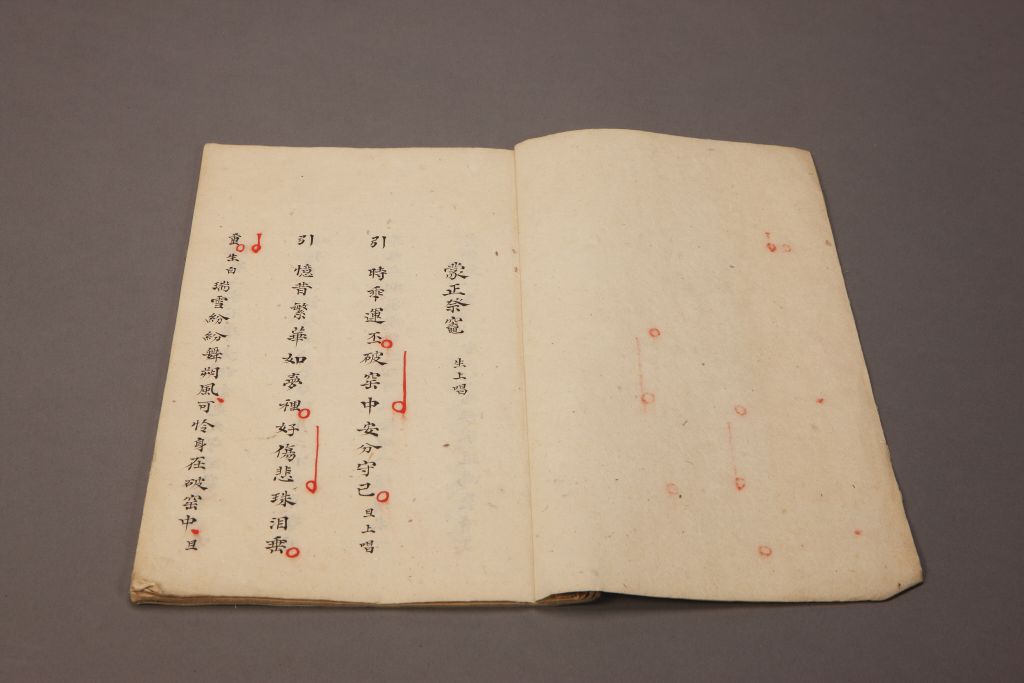 蒙正祭竈 生上唱
引 時乖運丕破窑中安分守己 旦上唱
引 憶昔繁華如夢裡好傷悲珠泪垂
生白 瑞雪紛紛舞朔風可怜身在破窑中 旦